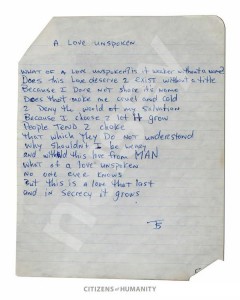 A LOVE UNSPOKEN
WHAT OF A LOVE UNSPOKEN? is it weaker without a name?
Does this love deserve 2 exist without a title
Because I Dare not share its name
Does that make me cruel and cold
I Deny the world of my salvation
Because I choose 2 let it grow
People Tend 2 choke
that which they do not understand
Why shouldn't I be weary
and withold this love from MAN
What of a love unspoken
no one ever knows
But this is a love that last
and in secrecy it grows
CITIZENS of HUMANITY